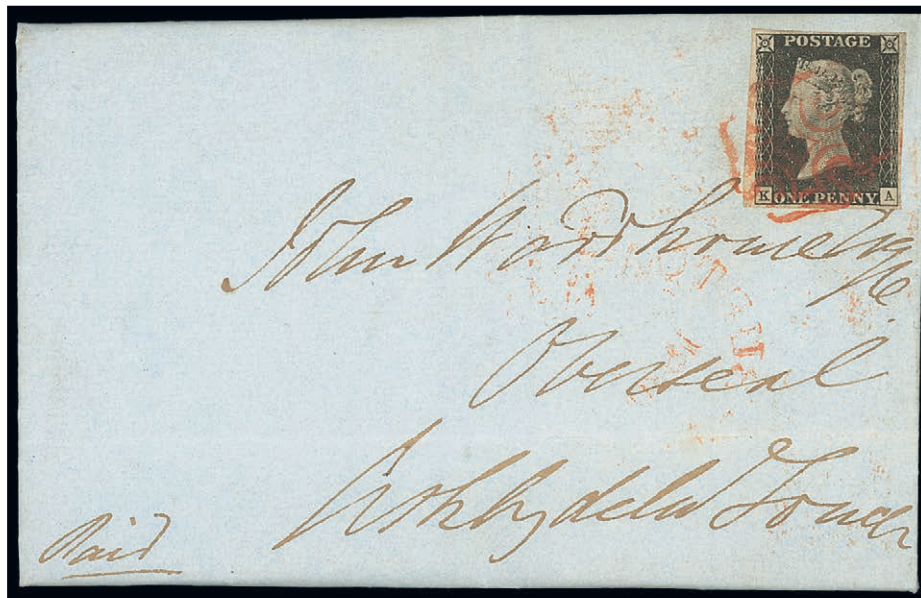 POSTAGE
K ONE PENNY A
John Wardhouse Esq
Overseal
Ashby de la Zouch
Paid